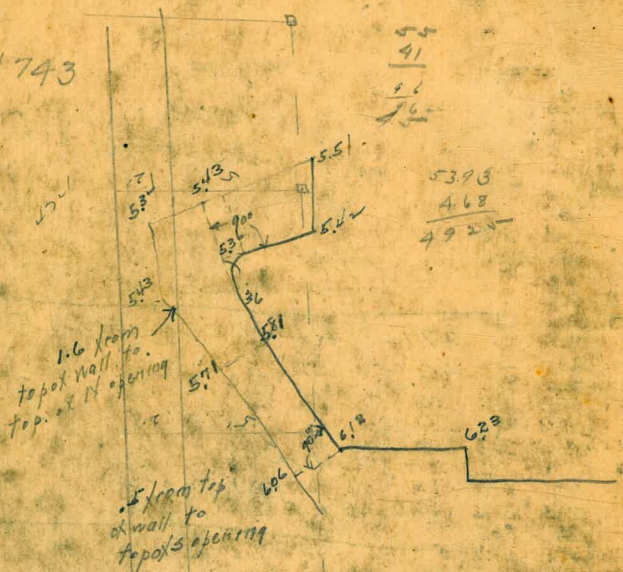 743
55
41
5.51
5.43
5.32
53.93
4.68
4925
90°
5.42
5.36
5.43
36
5.81
1.6 from
top of wall to
top. of N opening
5.71
90°
6.18
6.23
6.06
.5 from top
of wall to
top of S opening